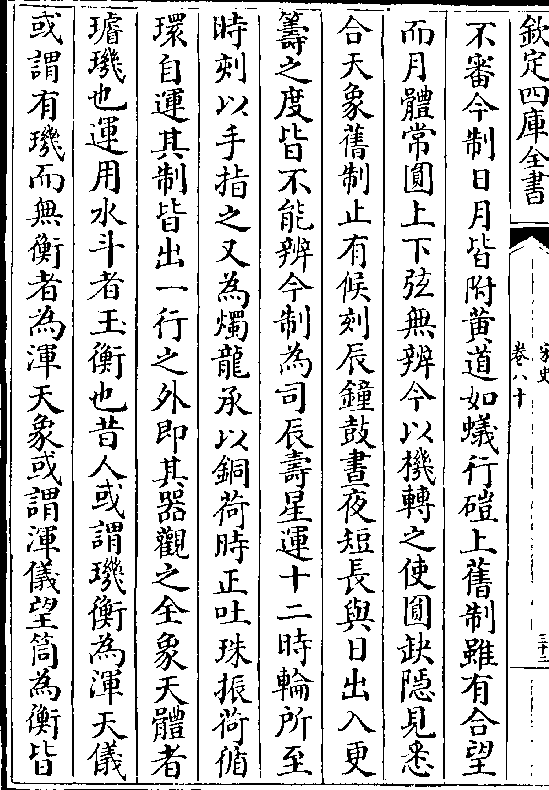 欽定四庫全書
宋史
卷八十
三十二
不審今制日月皆附黄道如蟻行磑上舊制雖有合望
而月體常圓上下弦無辨今以機轉之使圓缺隱見悉
合天象舊制止有候刻辰鐘鼓晝夜短長與日出入更
籌之度皆不能辨今制為司辰壽星運十二時輪所至
時刻以手指之又為燭龍承以銅荷時正吐珠振荷循
環自運其制皆出一行之外即其器觀之全象天體者
璿璣也運用水斗者玉衡也昔人或謂璣衡為渾天儀
或謂有璣而無衡者為渾天象或謂渾儀望筒為衡皆